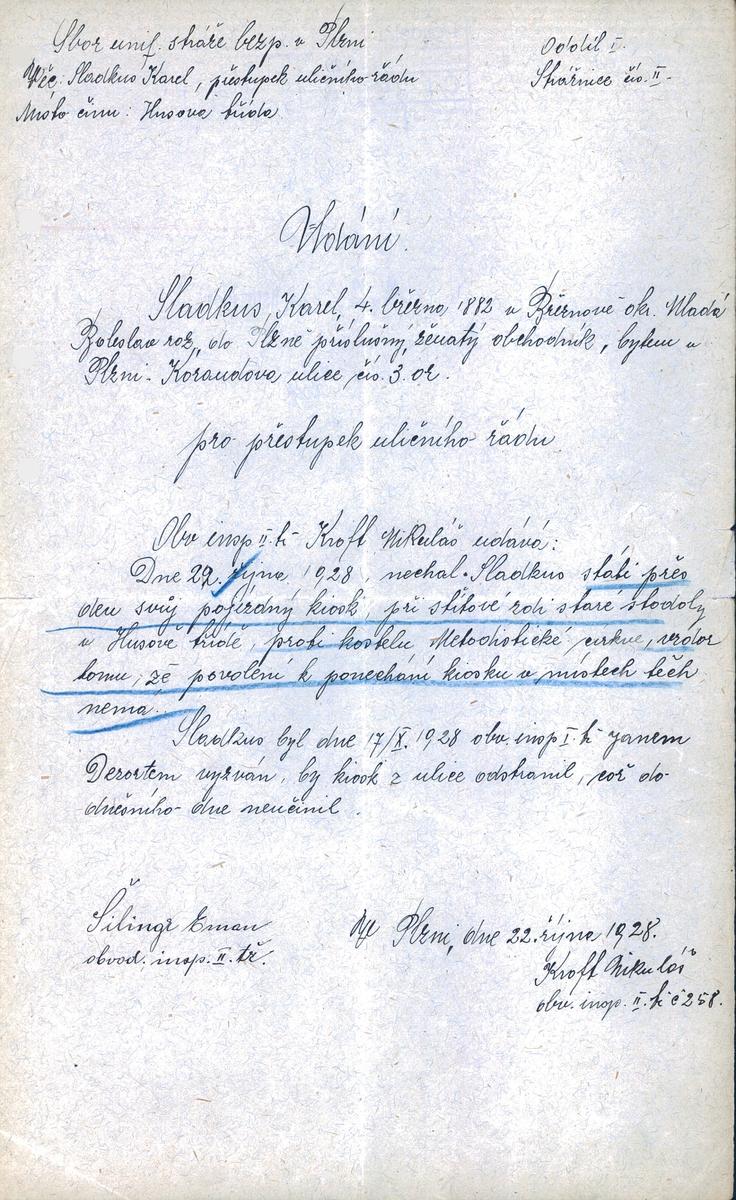 Sbor unif. stráže bezp. v Plzni
Oddíl I.
Věc: Sladkus Karel, přestupek uličního řádu
Strážnice čís. II.
Místo činu: Husova třída
Udání.
Sladkus, Karel, 4. března 1882 v Březnově okr. Mladá
Boleslav roz., do Plzně příslušný, ženatý obchodník, bytem v
Plzni - Korandova ulice čís. 3. or.
pro přestupek uličního řádu
Obv. insp. II. tř. Kroft Mikuláš udává:
Dne 22. října 1928, nechal Sladkus státi přes
den svůj pojízdný kiosk, při štítové zdi staré stodoly
v Husově třídě, proti kostelu Metodistické církve, vzdor
tomu, že povolení k ponechání kiosku v místech těch
nemá.
Sladkus byl dne 17/X. 1928 obv. insp. I. tř. Janem
Dezortem vyzván, by kiosk z ulice odstranil, což do
dnešního dne neučinil.
Šilingr Eman
V Plzni, dne 22. října 1928.
obvod. insp. II. tř.
Kroft Mikuláš
obv. insp. II. tř. č 258.